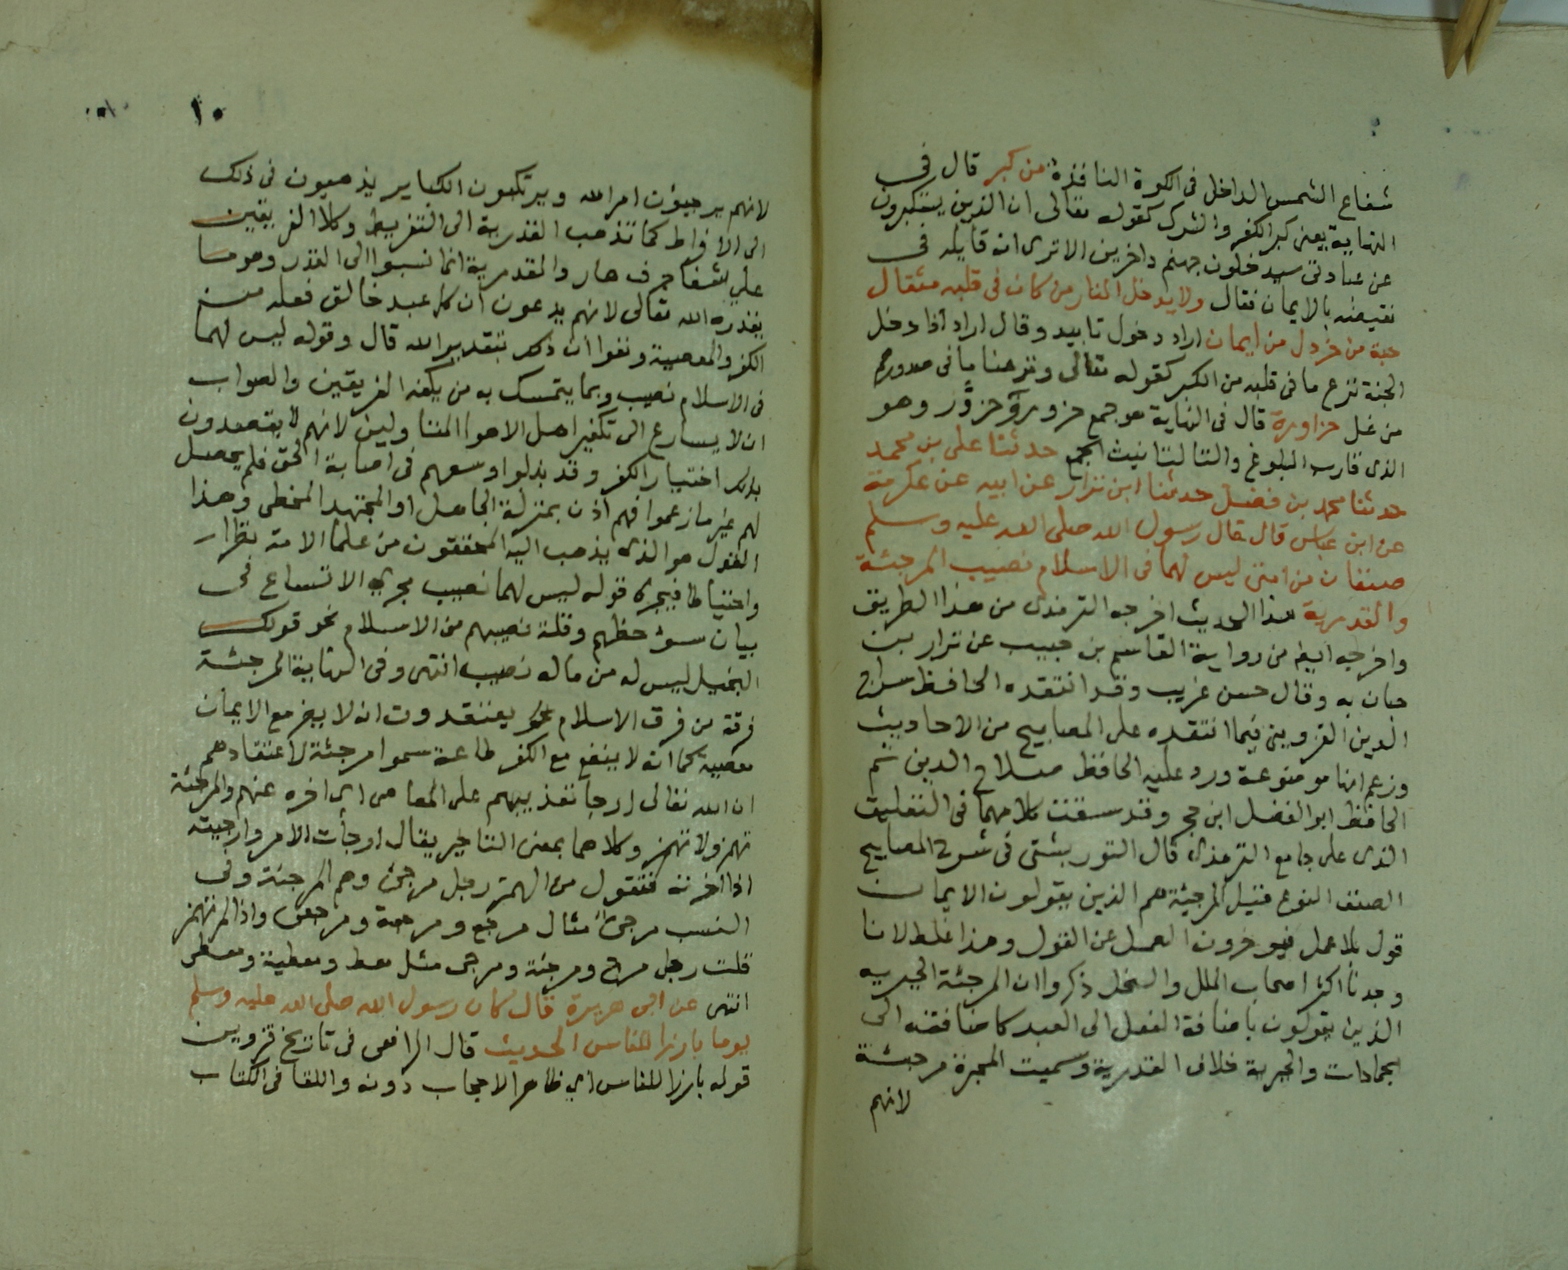 شعاع الشمس الداخل فى الكوة النافذة من كبر قال فى
النهاية يعنى كبر الكفر والشرك كقوله تعالى ان الذين يستكبرون
عن عبادتى سيدخلون جهنم داخرين الا ترى انه قابله فى
نقيضه بالايمان فقال ولا يدخل النار من كان فى قلبه مثقال
حبة من خردل من ايمان اراد دخول تابيد وقال اراد اذا دخل
الجنة نزع ما فى قلبه من الكبر كقوله تعالى ونزعنا ما فى صدورهم
من غل حزاورة قال فى النهاية هو جمع حزور وحزور وهو
الذى قارب البلوغ والتا لتانيث الجمع حدثنا على بن محمد
حدثنا محمد بن فضيل حدثنا ابن نزار عن ابيه عن عكرمة
عن ابن عباس قال قال رسول الله صلى الله عليه وسلم
صنفان من امتى ليس لهما فى الاسلام نصيب المرجئة
والقدرية هذا الحديث اخرجه الترمذى من هذا الطريق
واخرجه ايضا من رواية القاسم بن حبيب عن نزار بن
حبان به وقال حسن غريب وقد انتقده الحافظ سراج
الدين القزوينى فيما انتقده على المصابيح من الاحاديث
وزعم انها موضوعة ورد عليه الحافظ صلاح الدين ثم
الحافظ ابو الفضل ابن حجر وقد سقت كلامهما فى التعليق
الذى على جامع الترمذى قال التوربشتى فى شرح المصابيح
الصنف النوع قيل المرجئة هم الذين يقولون الايمان
قول بلا عمل فيوخرون العمل عن القول وهذا غلط لانا
وجدنا اكثر اصحاب الملل والنحل ذكروا ان المرجئة الجبرية
الذين يقولون باضافة الفعل الى العبد كاضافته الى
الجمادات والجبرية خلاف القدرية وسميت المجبرة مرجئة
لانهم
١٠
لانهم يرجئون امر الله ويرتكبون الكباير يذهبون فى ذلك
الى الافراط كما تذهب القدرية الى التفريط وكلا الفريقين
على شفا جرف هار والقدرية انما نسبوا الى القدر وهو ما
يقدره الله تعالى لانهم يدعون ان كل عبد خالق فعله من
الكفر والمعصية ونفوا ان ذلك بتقدير الله قال وقوله ليس لهما
فى الاسلام نصيب ربما يتمسك به من يكفر الفريقين والصواب
ان لا يسارع الى تكفير اهل الاهوا المتاولين لانهم لا يقصدون
بذلك اختيار الكفر وقد بذلوا وسعهم فى اصابة الحق فلم يحصل
لهم غير ما زعموا فهم اذن بمنزلة الجاهل او المجتهد المخطى وهذا
القول هو الذى يذهب اليه المحققون من علما الامة نظرا
واحتياطا فيجرى قوله ليس لهما نصيب مجرى الاتساع فى
بيان سوء حظهم وقلة نصيبهم من الاسلام نحو قولك
البخيل ليس له من ماله نصيب انتهى وفى النهاية المرجئة
فرقة من فرق الاسلام يعتقدون انه لا يضر مع الايمان
معصية كما انه لا ينفع مع الكفر طاعة سموا مرجئة لاعتقادهم
ان الله تعالى ارجا تعذيبهم على المعاصى اى اخره عنهم والمرجئة
تهمز ولا تهمز وكلاهما بمعنى التاخير يقال ارجأت الامر وارجيته
اذا اخرته فتقول من الهمز رجل مرجئ وهم المرجئة وفى
النسب مرجئى مثال مرجع ومرجعة ومرجعى واذا لم تهمز
قلت رجل مرج ومرجئة ومرجى مثل معط ومعطية ومعطى
انتهى عن ابى هريرة قال كان رسول الله صلى الله عليه وسلم
يوما بارزا للناس الحديث قال الرافعى فى تاريخ قزوين
قوله بارزا للناس اى ظاهر الاحجاب دونه واللقا فى الكتاب